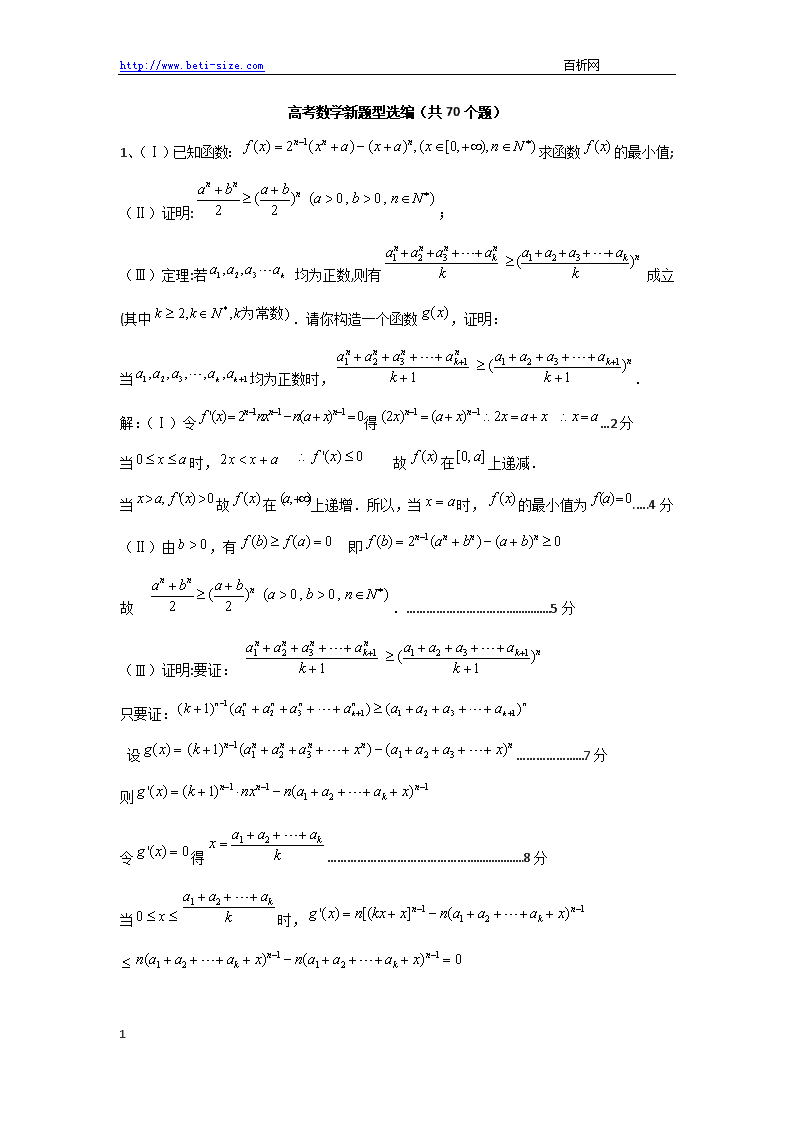 http://www.beti-size.com 百析网
高考数学新题型选编（共 70 个题）
1、（Ⅰ）已知函数： f(x) = 2^{n-1}(x^n + a) − (x + a)^n , (x∈[0,+∞), n∈N^*) 求函数 f(x) 的最小值；
（Ⅱ）证明: \frac{a^n + b^n}{2} ≥ (\frac{a+b}{2})^n (a > 0, b > 0, n∈N^*) ；
（Ⅲ）定理:若 a_1, a_2, a_3 ⋯ a_k 均为正数,则有 \frac{a_1^n + a_2^n + a_3^n + ⋯ + a_k^n}{k} ≥ (\frac{a_1 + a_2 + a_3 + ⋯ + a_k}{k})^n 成立
(其中 k ≥ 2, k∈N^*, k为常数) ．请你构造一个函数 g(x) ，证明：
当 a_1, a_2, a_3, ⋯, a_k, a_{k+1} 均为正数时， \frac{a_1^n + a_2^n + a_3^n + ⋯ + a_{k+1}^n}{k+1} ≥ (\frac{a_1 + a_2 + a_3 + ⋯ + a_{k+1}}{k+1})^n ．
解:（Ⅰ）令 f'(x) = 2^{n-1}nx^{n-1} − n(a+x)^{n-1} = 0 得 (2x)^{n-1} = (a+x)^{n-1} ∴ 2x = a+x ∴ x = a …2 分
当 0 ≤ x ≤ a 时， 2x < x + a ∴ f'(x) ≤ 0 故 f(x) 在 [0, a] 上递减．
当 x > a, f'(x) > 0 故 f(x) 在 (a,+∞) 上递增．所以，当 x = a 时， f(x) 的最小值为 f(a) = 0 .….4 分
（Ⅱ）由 b > 0 ,有 f(b) ≥ f(a) = 0 即 f(b) = 2^{n-1}(a^n + b^n) − (a+b)^n ≥ 0
故 \frac{a^n + b^n}{2} ≥ (\frac{a+b}{2})^n (a > 0, b > 0, n∈N^*) ．………………………………………5 分
（Ⅲ）证明:要证： \frac{a_1^n + a_2^n + a_3^n + ⋯ + a_{k+1}^n}{k+1} ≥ (\frac{a_1 + a_2 + a_3 + ⋯ + a_{k+1}}{k+1})^n
只要证： (k+1)^{n-1}(a_1^n + a_2^n + a_3^n + ⋯ + a_{k+1}^n) ≥ (a_1 + a_2 + a_3 + ⋯ + a_{k+1})^n
设 g(x) = (k+1)^{n-1}(a_1^n + a_2^n + a_3^n + ⋯ + x^n) − (a_1 + a_2 + a_3 + ⋯ + x)^n …………………7 分
则 g'(x) = (k+1)^{n-1} · nx^{n-1} − n(a_1 + a_2 + ⋯ + a_k + x)^{n-1}
令 g'(x) = 0 得 x = \frac{a_1 + a_2 + ⋯ + a_k}{k} ……………………………………………………8 分
当 0 ≤ x ≤ \frac{a_1 + a_2 + ⋯ + a_k}{k} 时， g'(x) = n[(kx + x]^{n-1} − n(a_1 + a_2 + ⋯ + a_k + x)^{n-1}
≤ n(a_1 + a_2 + ⋯ + a_k + x)^{n-1} − n(a_1 + a_2 + ⋯ + a_k + x)^{n-1} = 0
1